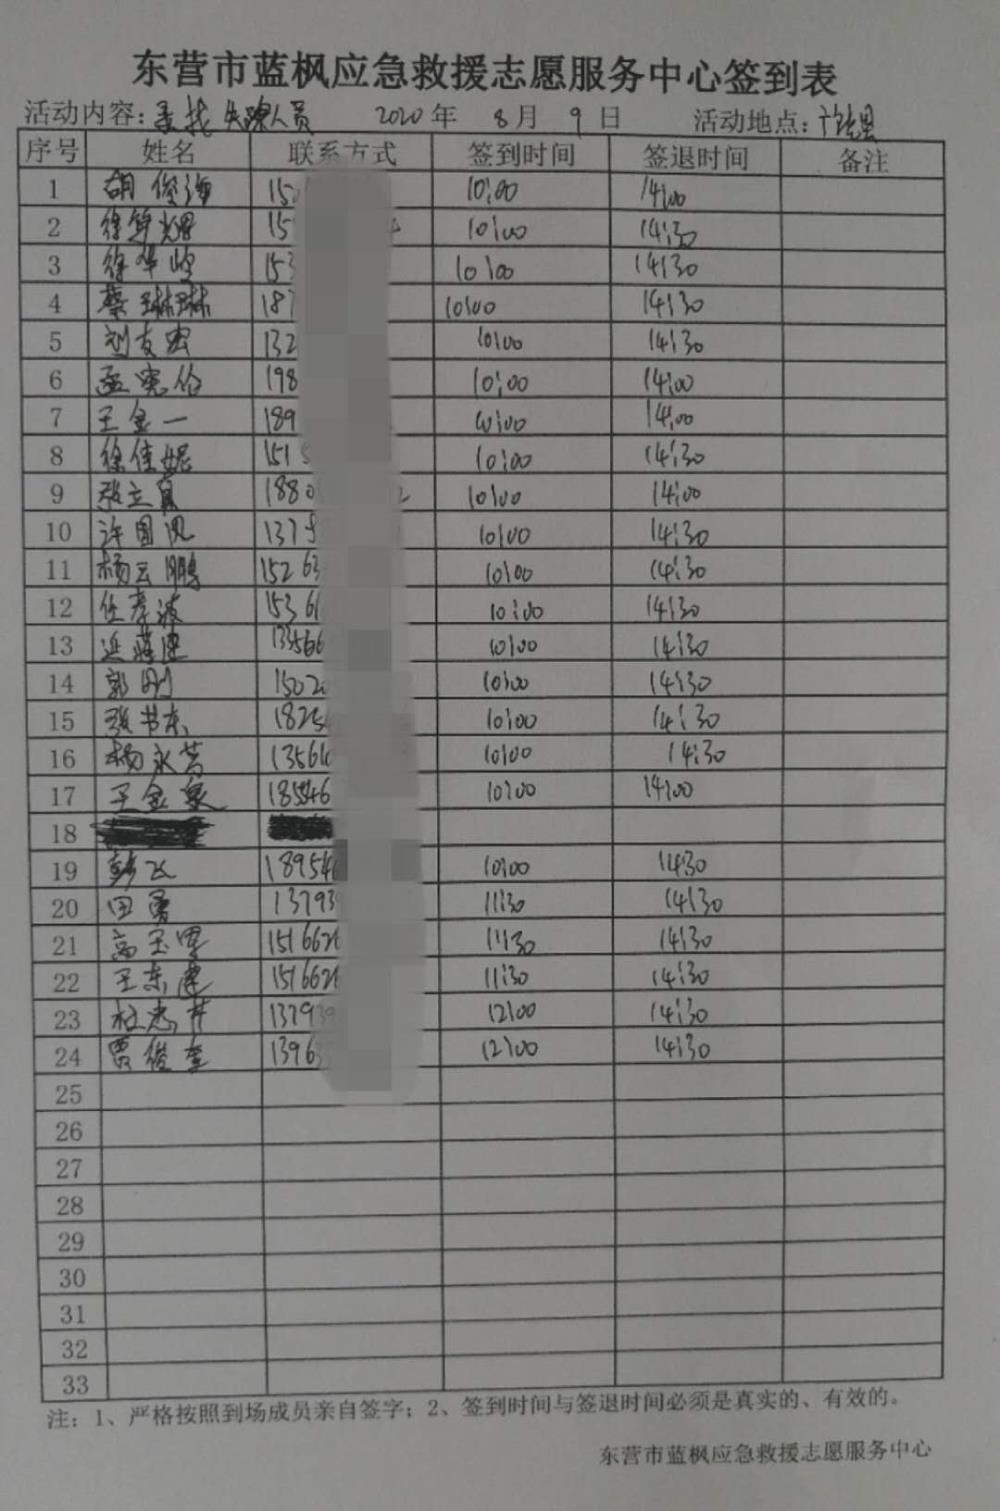 东营市蓝枫应急救援志愿服务中心签到表
活动内容:寻找失踪人员 2020年 8月 9日 活动地点:
序号 姓名 联系方式 签到时间 签退时间 备注
1 胡俊海 150 10:00 14:00
2 徐 15 10:00 14:30
3 徐华 153 10:00 14:30
4 蔡琳琳 187 10:00 14:30
5 刘友宏 132 10:00 14:30
6 孟宪伦 198 10:00 14:00
7 王金一 189 10:00 14:00
8 徐佳妮 151 10:00 14:30
9 张立 188 2 10:00 14:00
10 许国 137 10:00 14:30
11 杨云鹏 15263 10:00 14:30
12 任孝波 1536 10:00 14:30
13 13566 10:00 14:30
14 郭刚 1502 10:00 14:30
15 张书东 1825 10:00 14:30
16 杨永 1356 10:00 14:30
17 王金泉 18546 10:00 14:00
18
19 彭飞 18954 10:00 14:30
20 田勇 13793 11:30 14:30
21 高玉 151662 11:30 14:30
22 王东建 151662 11:30 14:30
23 杜志 13793 12:00 14:30
24 贾俊奎 1396 12:00 14:30
25
26
27
28
29
30
31
32
33
注:1、严格按照到场成员亲自签字;2、签到时间与签退时间必须是真实的、有效的。
东营市蓝枫应急救援志愿服务中心